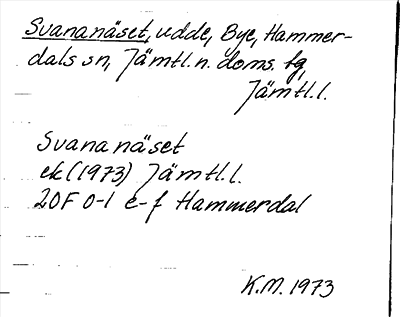 Svananäset, udde, Bye, Hammer-
dals sn, Jämtl. n. doms. tg,
Jämtl. l.
Svananäset
ek (1973) Jämtl. l.
20F 0-1 e-f Hammerdal
K.M. 1973